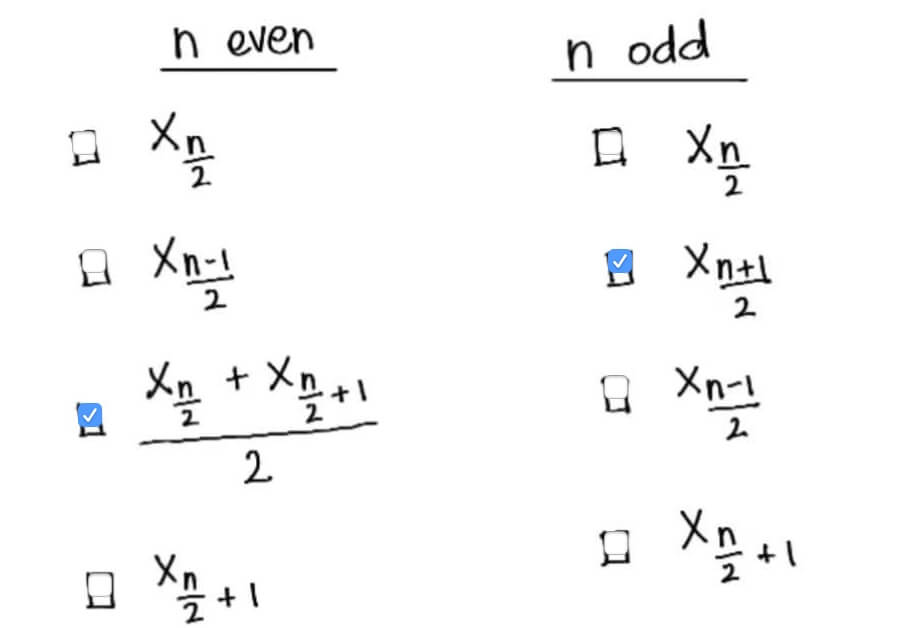 n even
☐ X_{\frac{n}{2}}
☐ X_{\frac{n-1}{2}}
☑ \frac{X_{\frac{n}{2}} + X_{\frac{n}{2}+1}}{2}
☐ X_{\frac{n}{2}+1}
n odd
☐ X_{\frac{n}{2}}
☑ X_{\frac{n+1}{2}}
☐ X_{\frac{n-1}{2}}
☐ X_{\frac{n}{2}+1}